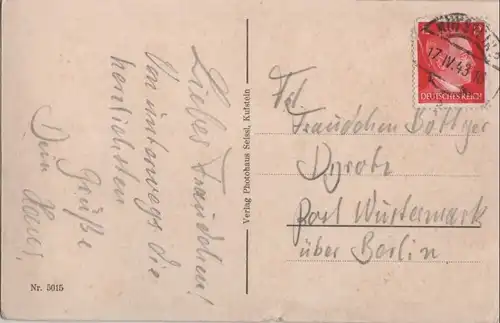 Liebes Traudchen!
Von unterwegs die
herzlichsten
Grüße
Dein Hans
Nr. 5015
Verlag Photohaus Seissl, Kufstein
KUFSTEIN 2
17.IV.43
DEUTSCHES REICH
Frl.
Traudchen Böttger
Dyrotz
Post Wustermark
über Berlin